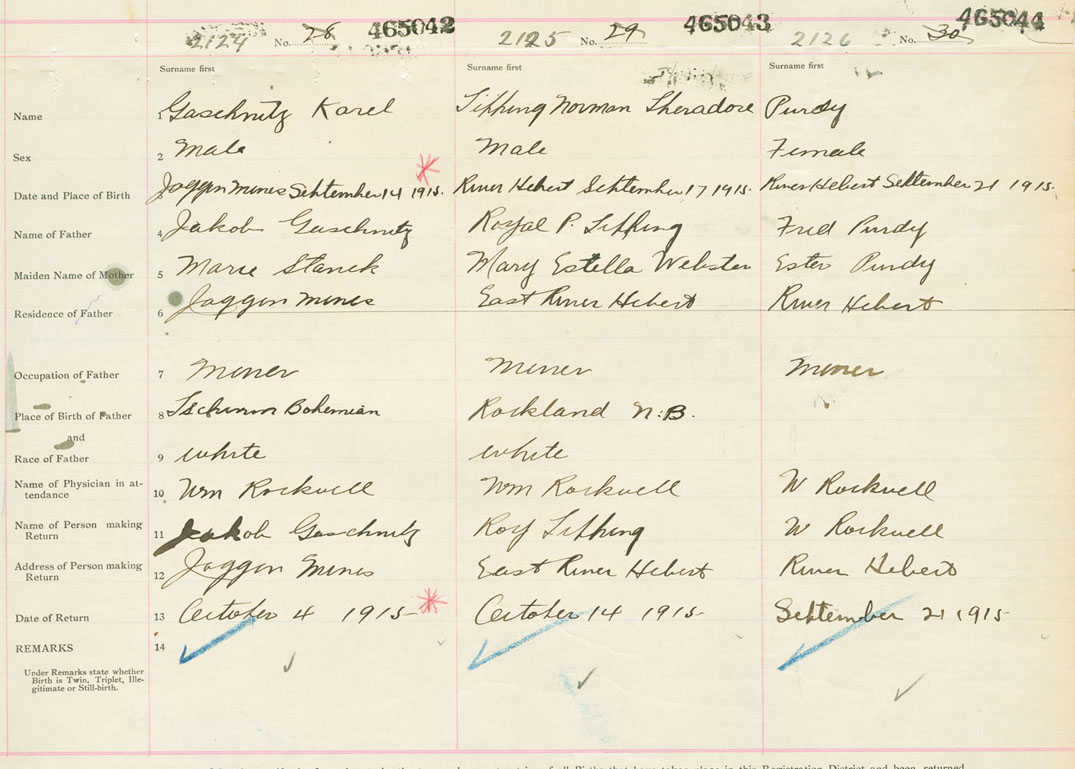 2124 No. 28 465042 2125 No. 29 465043 2126 No. 30 465044
Surname first Surname first Surname first
Name 1 Gaschnitz Karel Tipping Norman Theradore Purdy
Sex 2 Male Male Female
Date and Place of Birth 3 Joggin Mines September 14 1915. River Hebert September 17 1915. River Hebert September 21 1915.
Name of Father 4 Jakob Gaschnitz Royal P. Tipping Fred Purdy
Maiden Name of Mother 5 Marie Stanek Mary Estella Webster Ester Purdy
Residence of Father 6 Joggin Mines East River Hebert River Hebert
Occupation of Father 7 Miner Miner Miner
Place of Birth of Father 8 Bohemian Rockland N.B.
and
Race of Father 9 white white
Name of Physician in at- 10 Wm Rockwell Wm Rockwell W Rockwell
tendance
Name of Person making 11 Jakob Gaschnitz Roy Tipping W Rockwell
Return
Address of Person making 12 Joggin Mines East River Hebert River Hebert
Return
Date of Return 13 October 4 1915 October 14 1915 September 21 1915
REMARKS 14
Under Remarks state whether
Birth is Twin, Triplet, Ille-
gitimate or Still-birth.
of all Births that have taken place in this Registration District and been returned